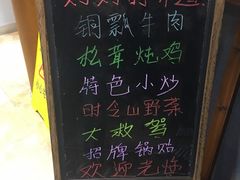 铜瓢牛肉
松茸炖鸡
特色小炒
时令山野菜
大救驾
招牌锅贴
欢迎光临